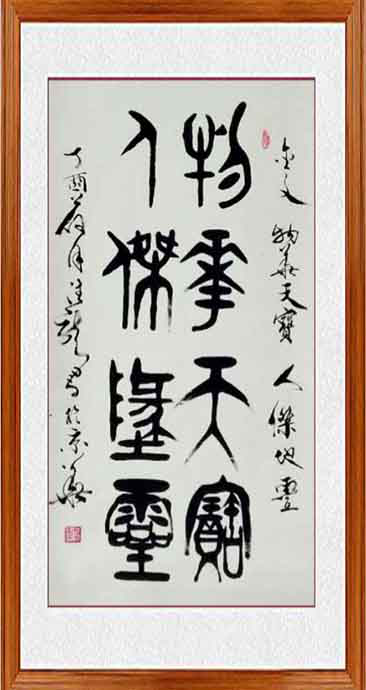 金文 物華天寶 人傑地靈
物華天寶
人傑地靈
丁酉 年 月 書於京華